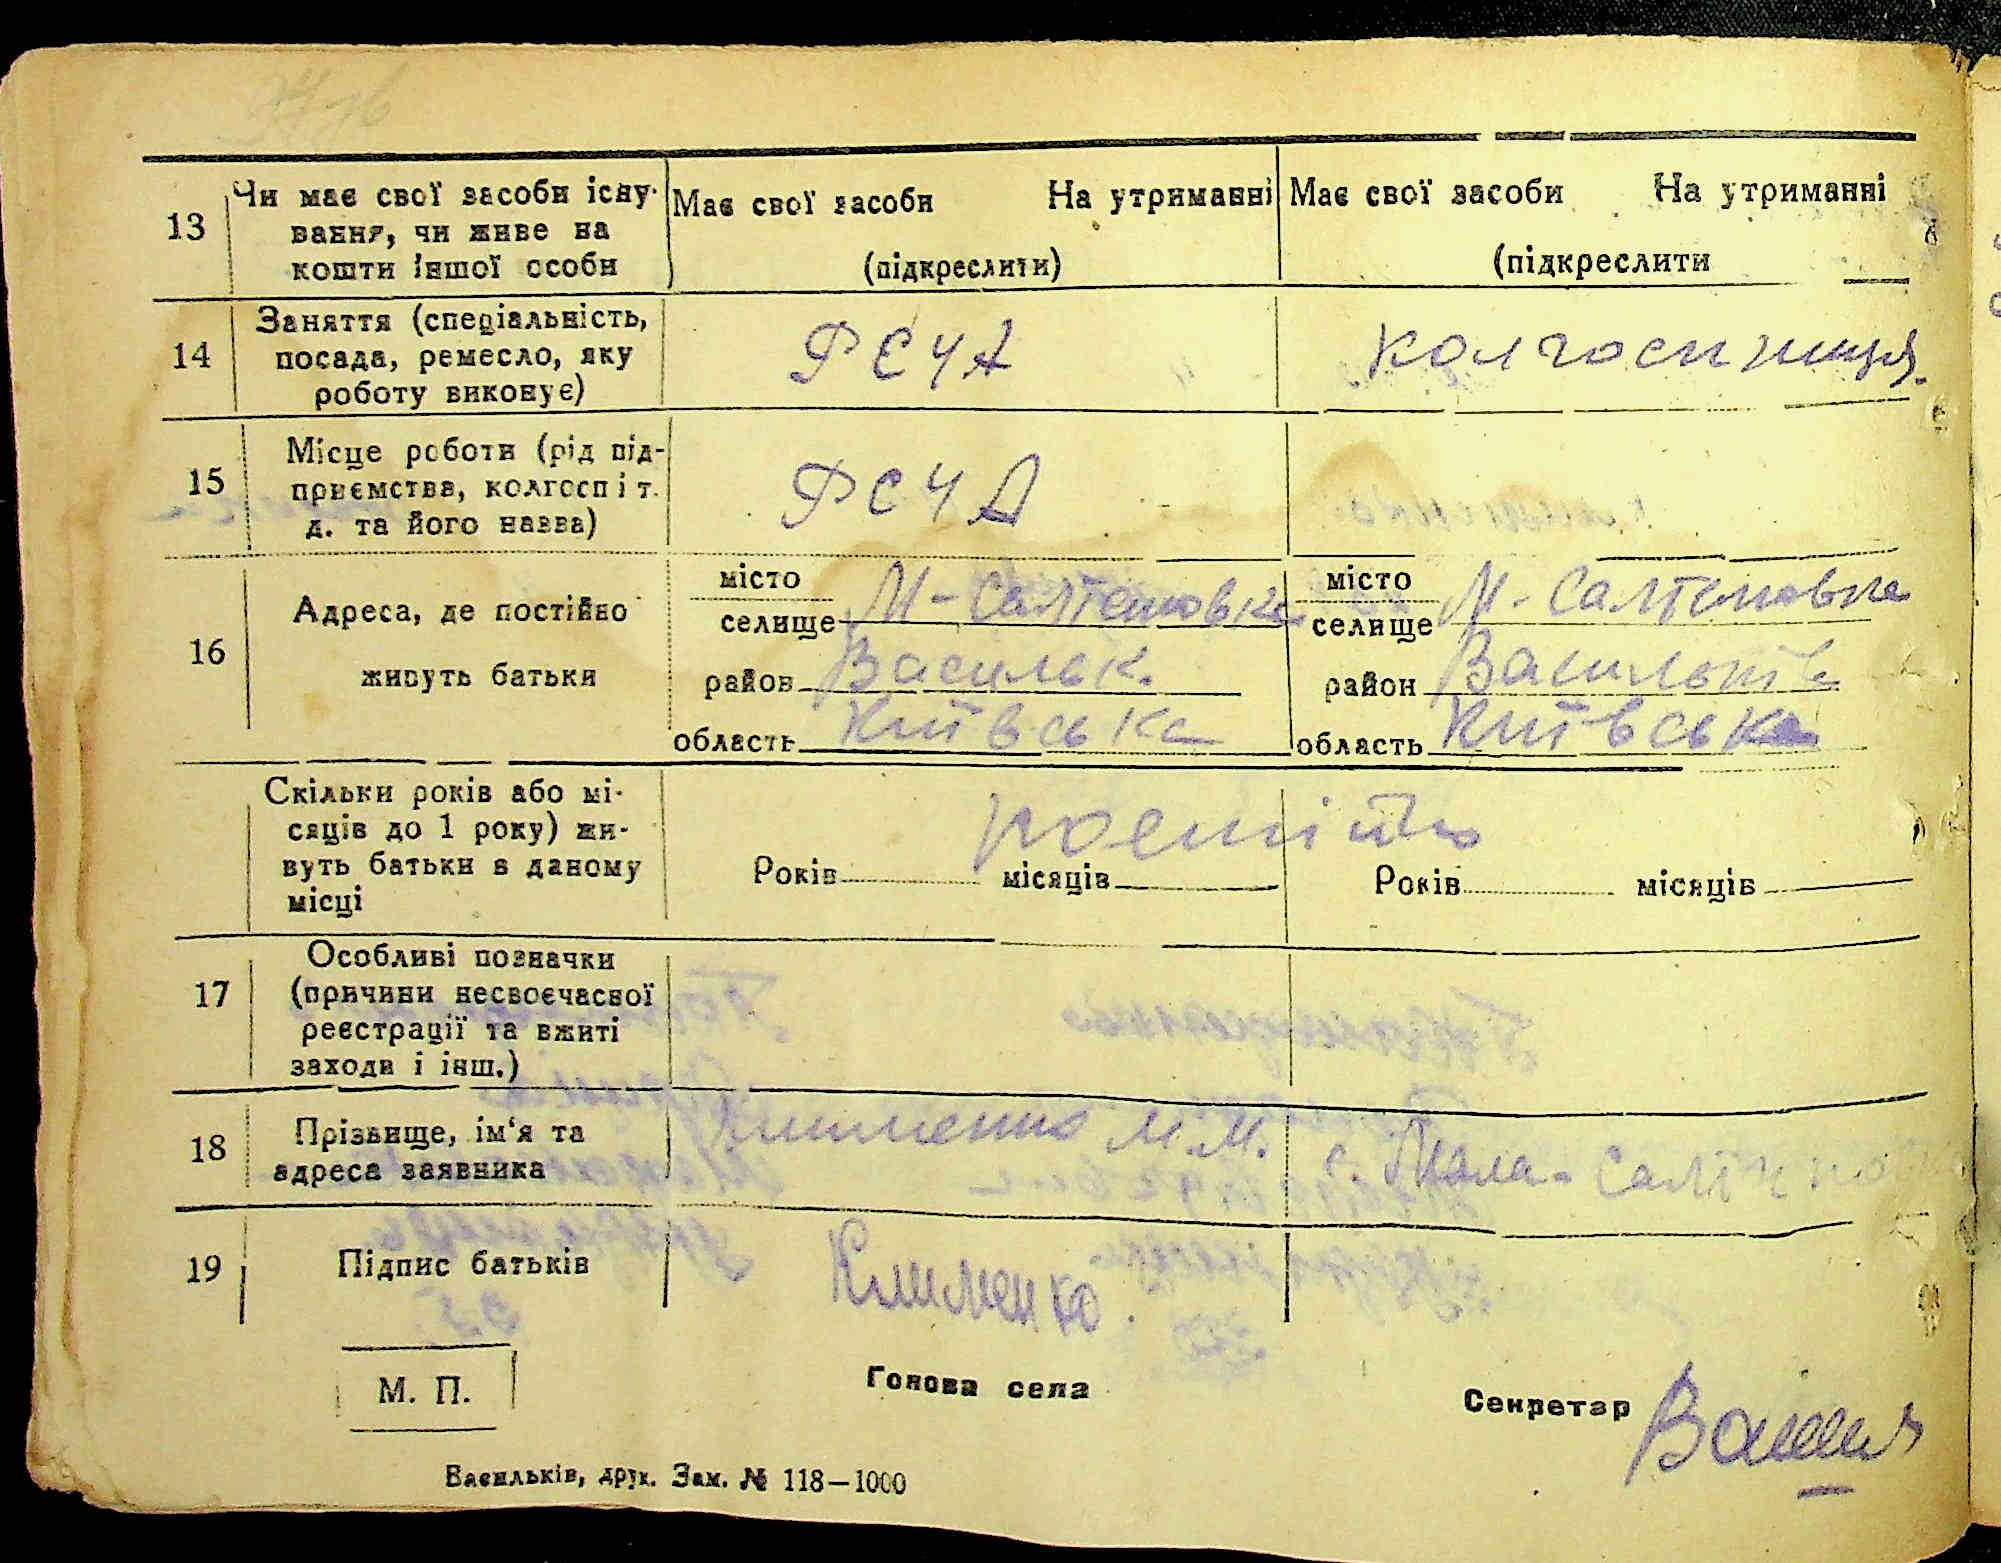 13 Чи має свої засоби існу- Має свої засоби На утриманні Має свої засоби На утриманні
вання, чи живе на
кошти іншої особи (підкреслити) (підкреслити
14 Заняття (спеціальність,
посада, ремесло, яку РСЧА колгоспниця.
роботу виконує)
15 Місце роботи (рід під-
приємства, колгосп і т. РСЧА
д. та його назва)
16 Адреса, де постійно
живуть батьки
місто
селище М-Салтановка
район Васильк.
область Київська
місто
селище М-Салтановка
район Васильків
область Київська
Скільки років або мі-
сяців до 1 року) жи- постійно
вуть батьки в даному Років місяців Років місяців
місці
17 Особливі позначки
(причини несвоєчасної
реєстрації та вжиті
заходи і інш.)
18 Прізвище, ім'я та Клименко М.М. с. Мала-
адреса заявника
19 Підпис батьків Клименко.
М. П. Голова села Секретар
Васильків, друк. Зам. № 118—1000